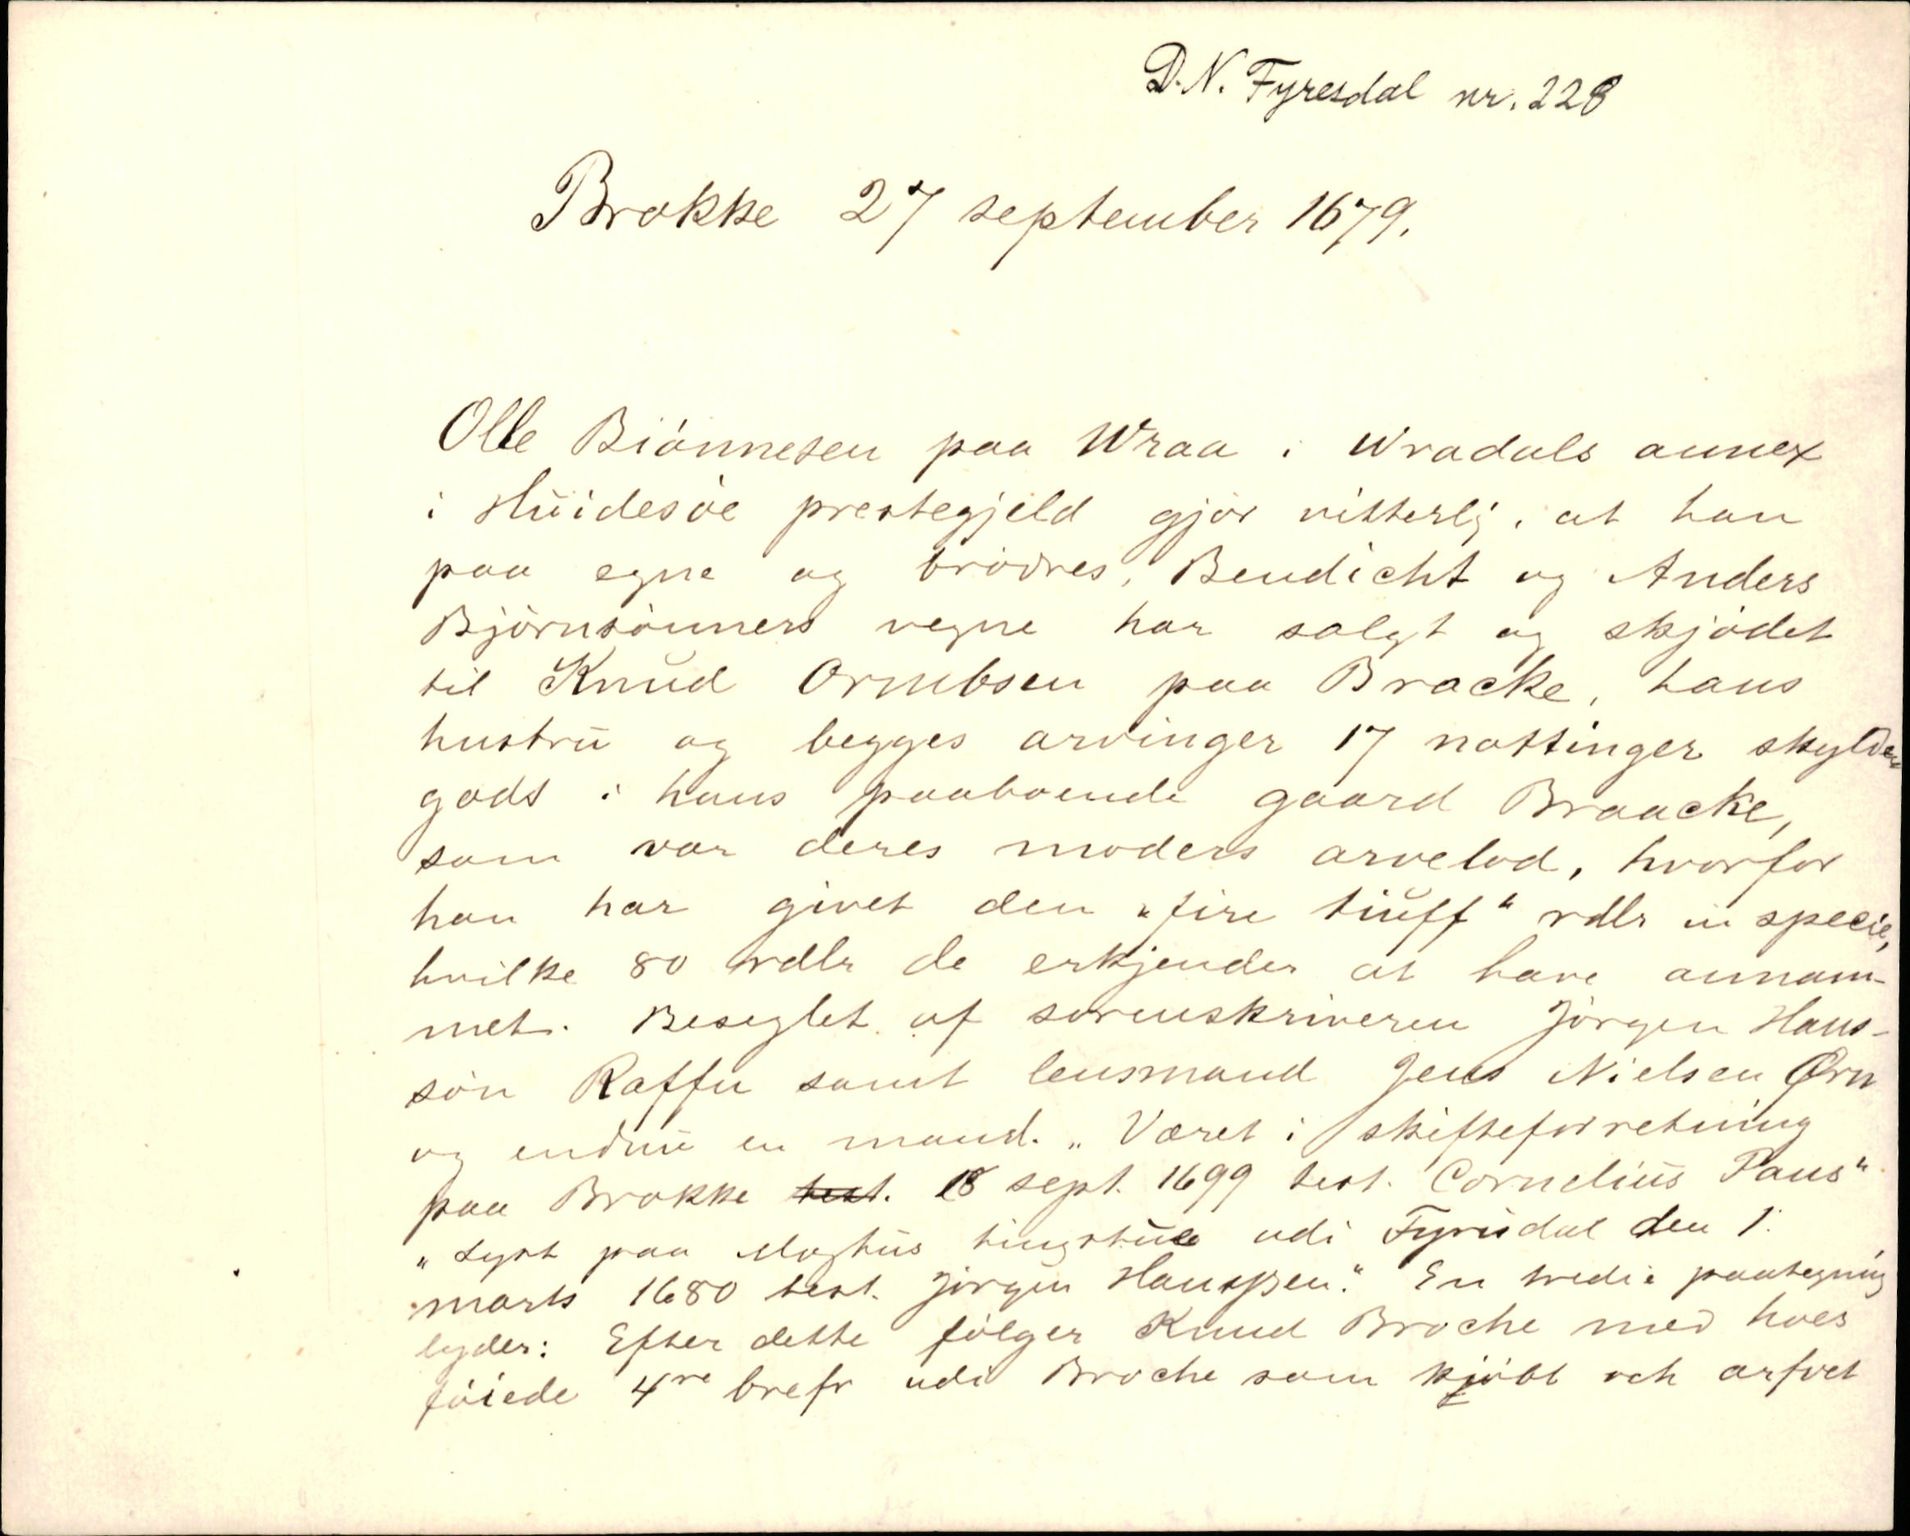 D.N. Fyresdal nr. 228
Brokke 27 september 1679.
Olle Biönnesen paa Wraa i Wradals annex
i Huidesöe prestegjeld gjör vitterlig, at han
paa egne og brödres, Bendicht og Anders
Björnsönners vegne har solgt og skjödet
til Knud Ormbsen paa Bracke, hans
hustru og begges arvinger 17 nottinger skylden
gods i hans paaboende gaard Braacke,
som var deres moders arvelod, hvorfor
han har givet dem "fire tiuff" rdlr in specie,
hvilke 80 rdlr de erkjender at have annam-
met. Beseglet af sorenskriveren Jörgen Hans-
sön Raffn samt lensmand Jens Nielsen Ørn
og endnu en mand. "Været i skifteforretning
paa Brokke test. 18 sept. 1699 test. Cornelius Paus"
"Lyst paa Moghus tingstue udi Fyrisdal den 1.
marts 1680 test. Jörgen Hansszen." En tredie paategning
lyder: Efter dette fölger Knud Broche med hoes
föiede 4re brefr udi Broche som kjöbt och arfvet